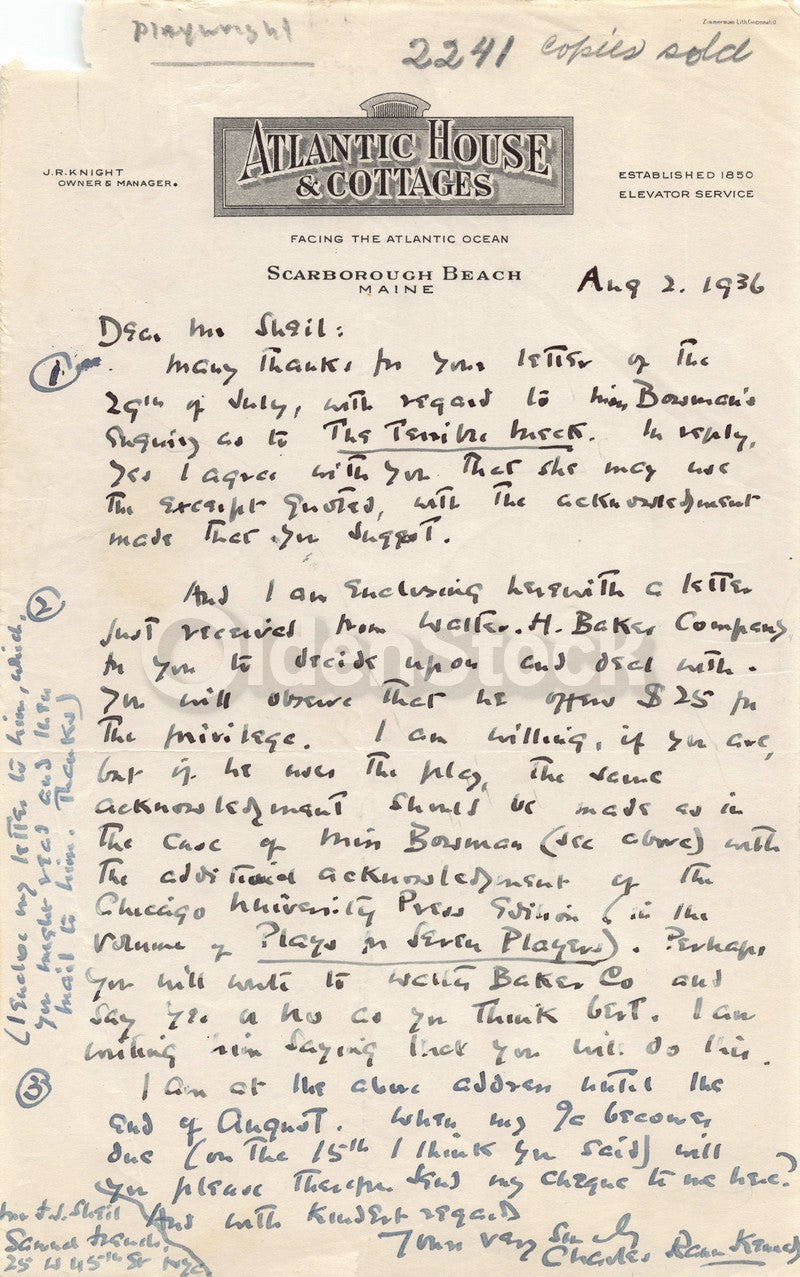 Playwright
2241 copies sold
Zimmerman Lith. Cincinnati, O.
J.R. KNIGHT
OWNER & MANAGER.
ATLANTIC HOUSE
& COTTAGES
ESTABLISHED 1850
ELEVATOR SERVICE
FACING THE ATLANTIC OCEAN
SCARBOROUGH BEACH
MAINE
Aug 2. 1936
Dear Mr Sheil:
1. Many thanks for your letter of the
29th of July, with regard to Miss Bowman's
enquiry as to The Terrible Meek. In reply,
Yes I agree with you that she may use
the excerpt quoted, with the acknowledgment
made that you suggest.
And I am enclosing herewith a letter
just received from Walter. H. Baker Company
for you to decide upon and deal with.
You will observe that he offers $25 for
the privilege. I am willing, if you are,
but if he uses the play, the same
acknowledgment should be made as in
the case of Miss Bowman (see above) with
the additional acknowledgment of the
Chicago University Press Edition (in the
volume of Plays for Seven Players). Perhaps
you will write to Walter Baker Co and
say Yes or No as you think best. I am
writing him saying that you will do this.
2
(I enclose my letter to him, which,
you might read and then
mail to him. Thanks)
3
I am at the above address until the
end of August. When my a/c becomes
due (on the 15th I think you said) will
you please therefore send my cheque to me here?
And with kindest regards
Yours very sincerely
Charles Rann Kennedy
Mr F.J. Sheil
Samuel French,
25 W 45th St NYC
OldenStock